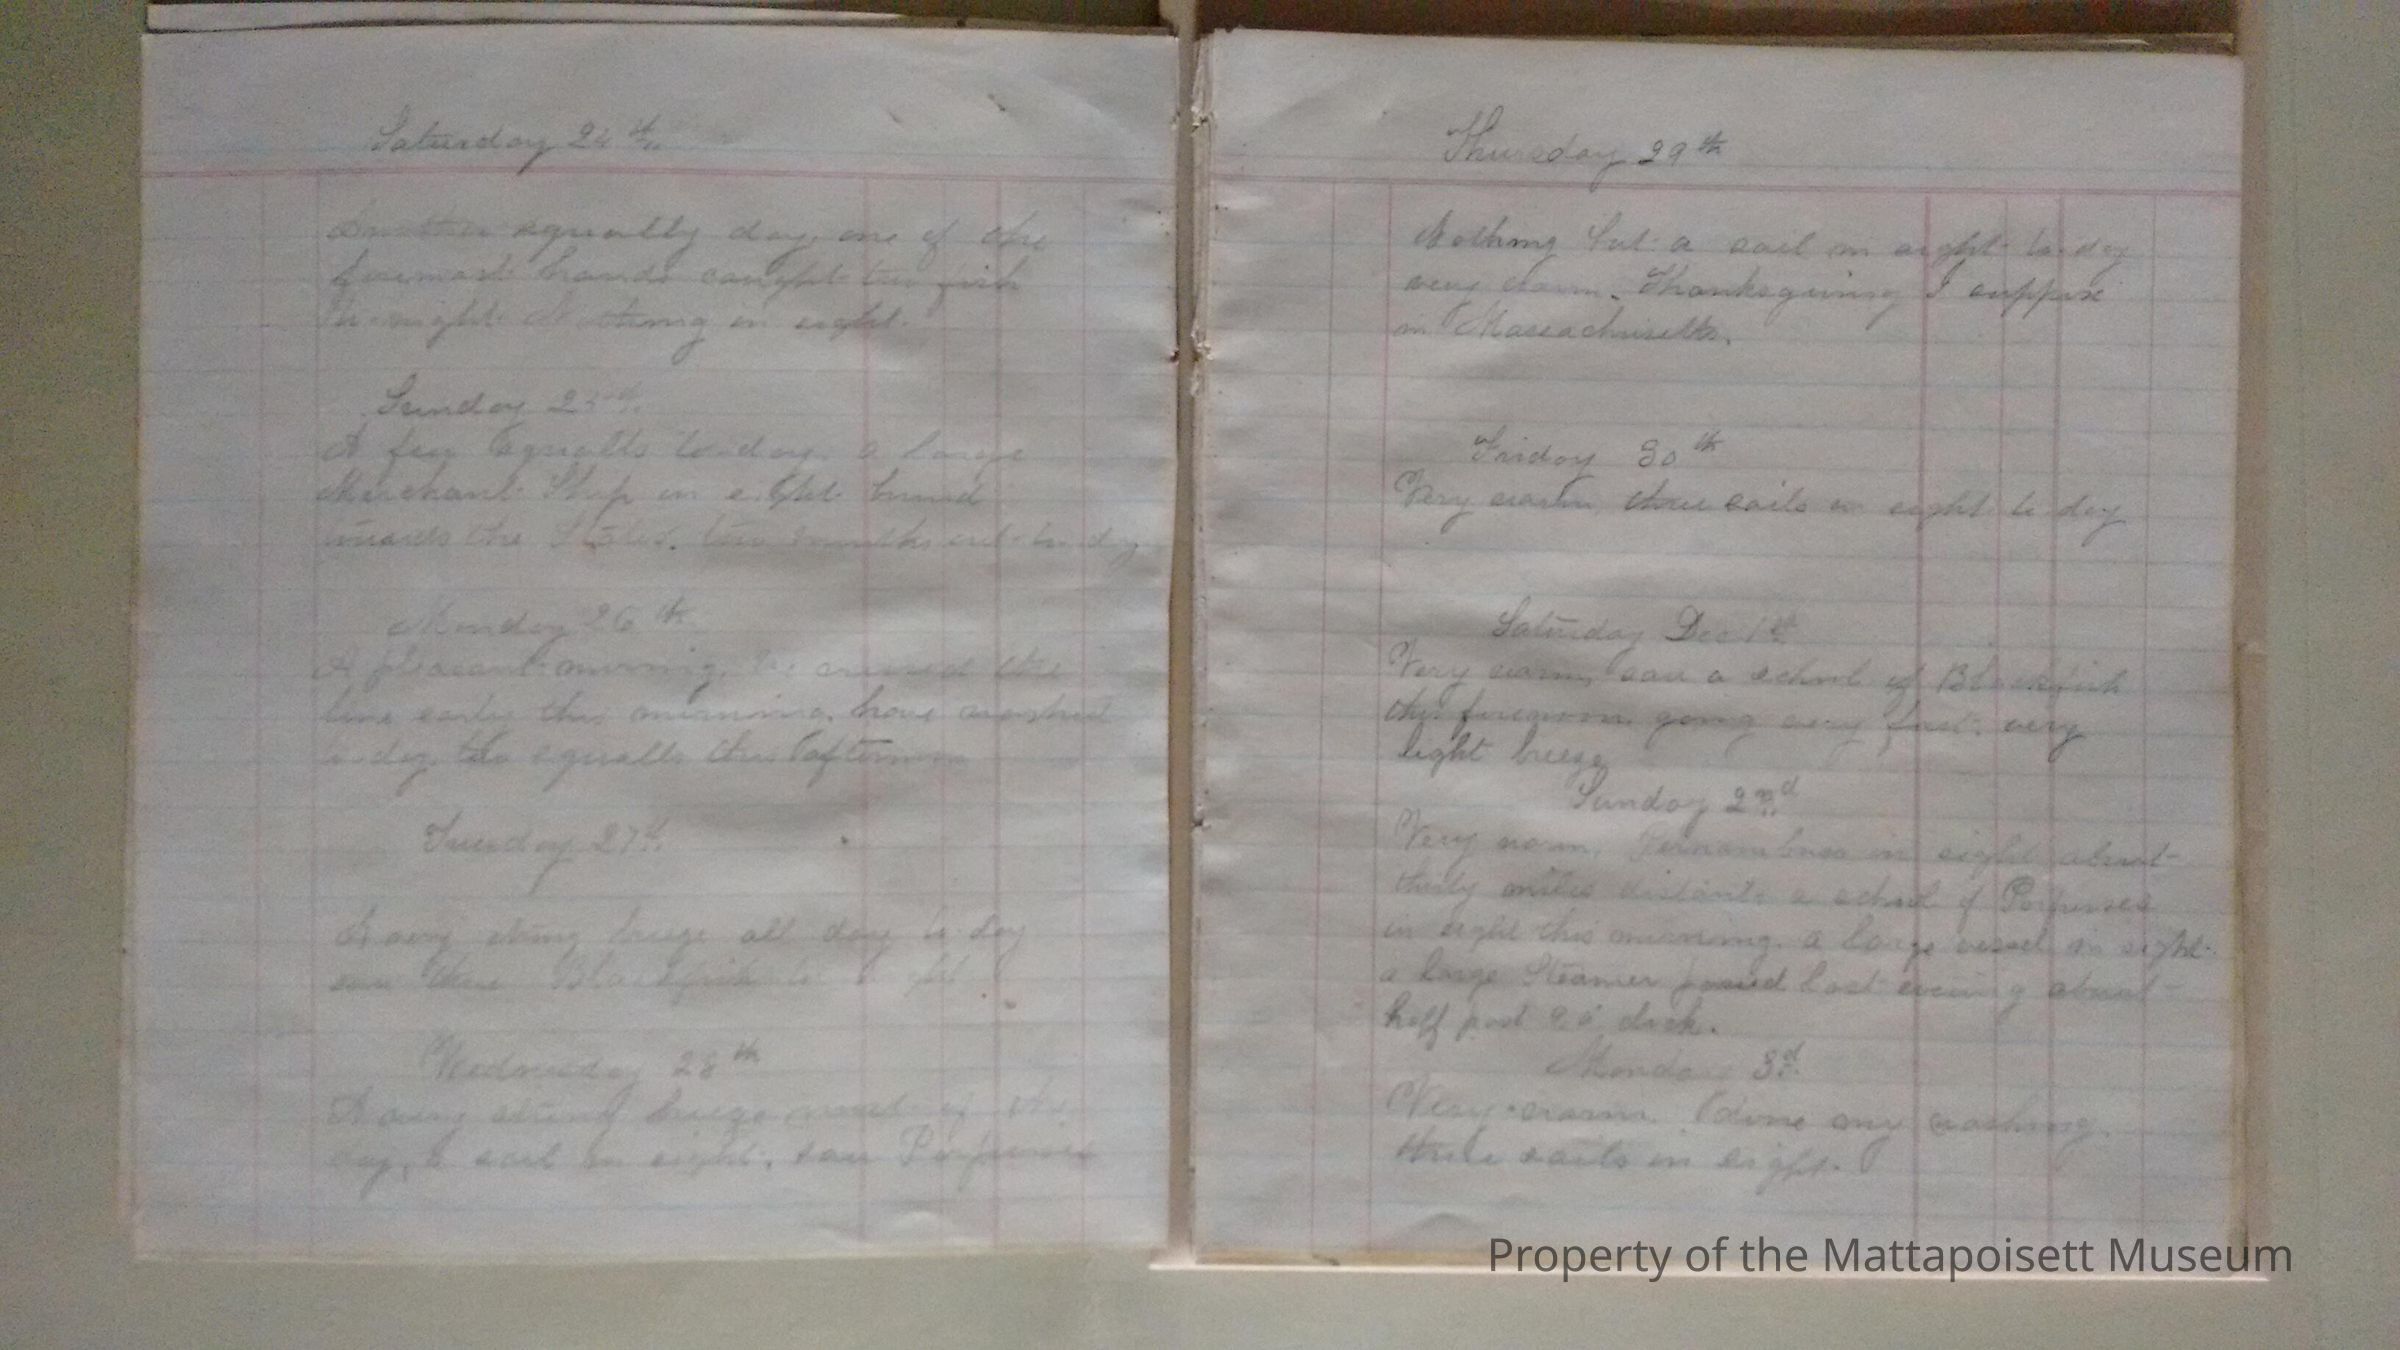 Saturday 24th
Another squally day, one of the
foremast hands caught two fish
to-night. Nothing in sight.
Sunday 25th.
A few squalls to-day. a large
Merchant Ship in sight bound
towards the States. two months out to-day
Monday 26th
A pleasant morning. We crossed the
line early this morning. have washed
to-day. two squalls this afternoon
Tuesday 27th.
A very strong breeze all day to-day
saw three Blackfish to
Wednesday 28th
A very strong breeze most of the
day, a sail in sight, saw Porpoises
Thursday 29th
Nothing but a sail in sight to-day
very warm. Thanksgiving I suppose
in Massachusetts.
Friday 30th
Very warm, three sails in sight to-day
Saturday Dec 1st
Very warm, saw a school of Blackfish
this forenoon going very fast. very
light breeze
Sunday 2nd
Very warm, Pernambuco in sight about
thirty miles distant. a school of Porpuses
in sight this morning. a large vessel in sight.
a large Steamer passed last evening about
half past 9 o' clock.
Monday 3d.
Very warm. I done my washing.
three sails in sight.
Property of the Mattapoisett Museum